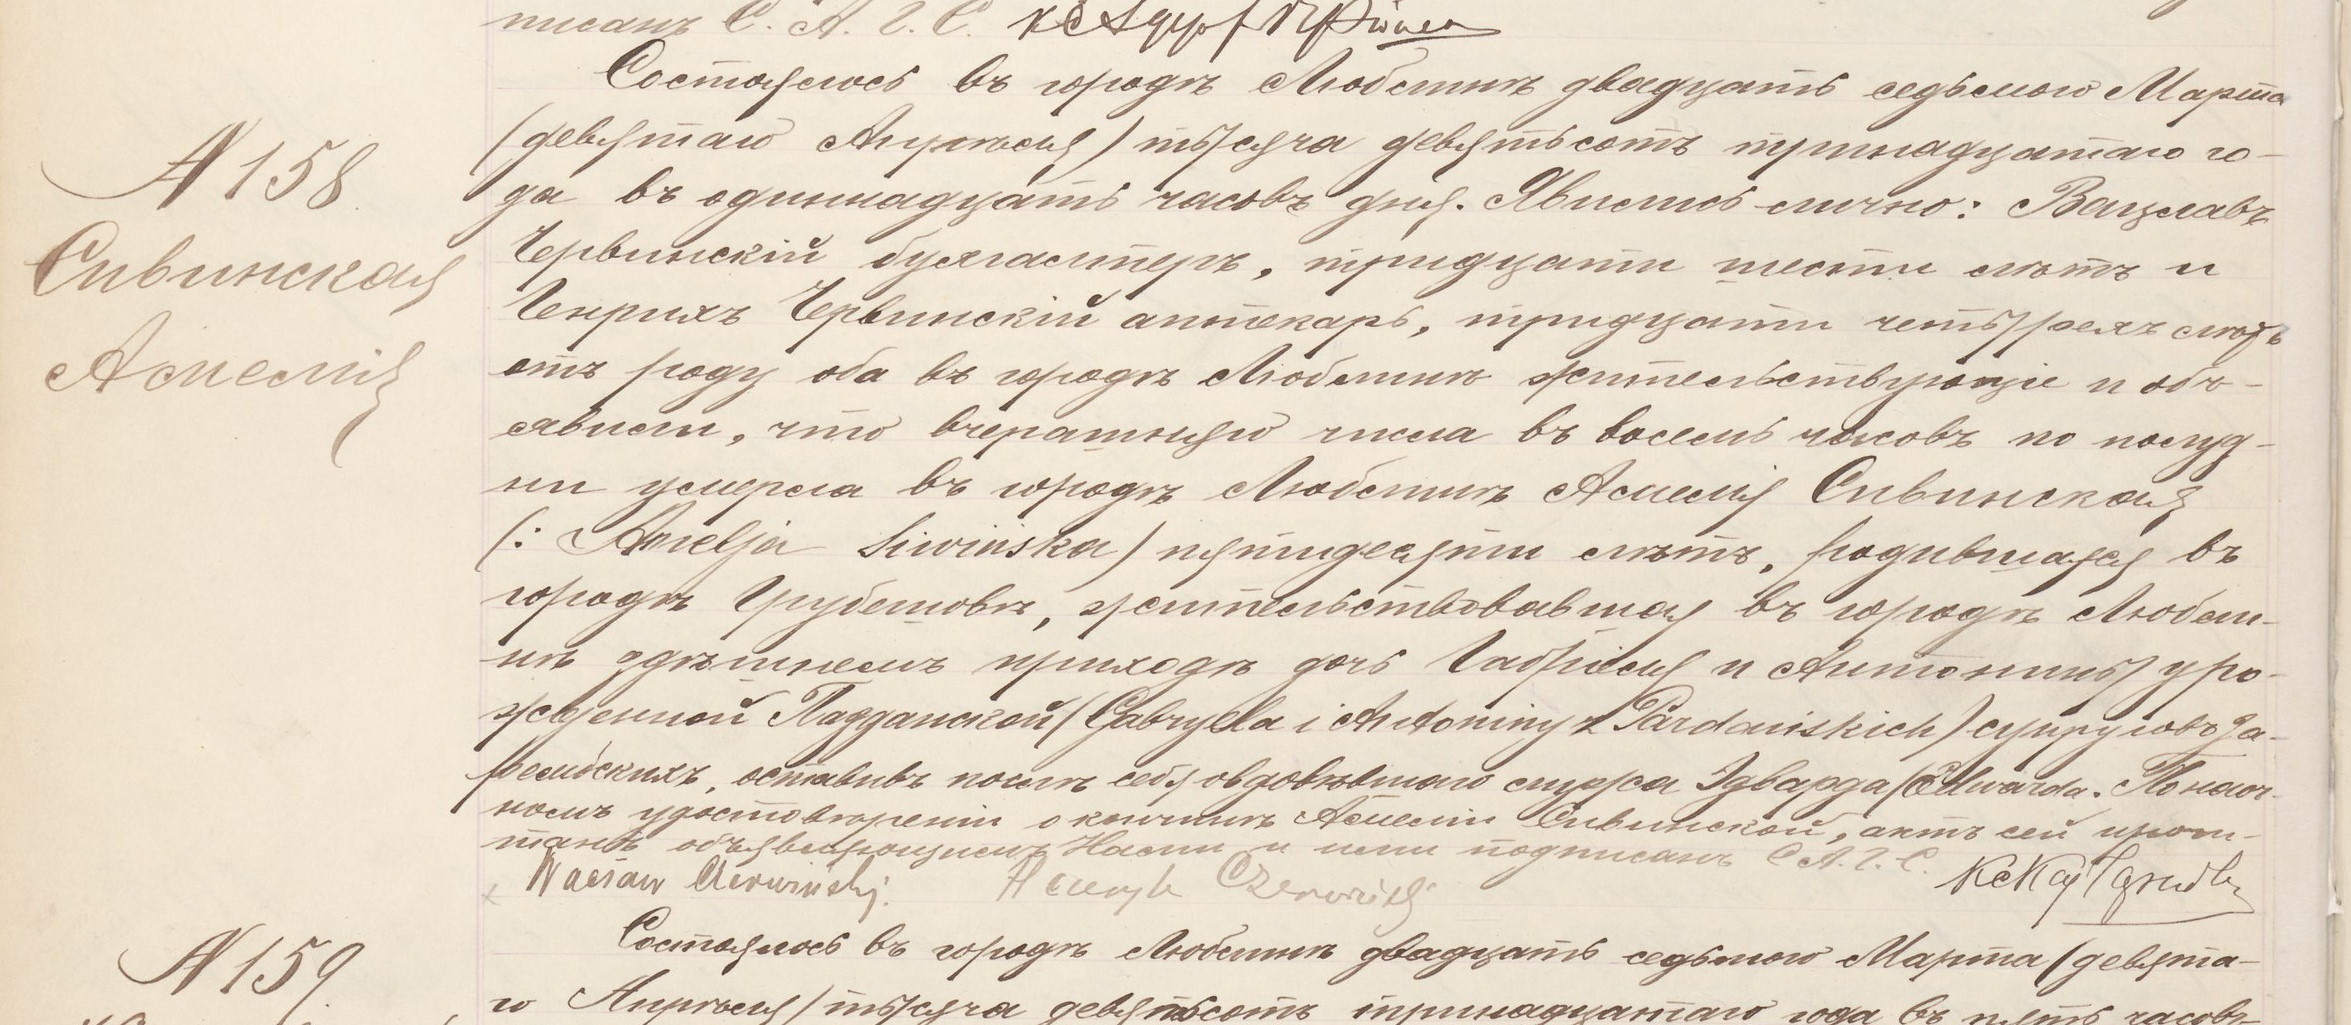 писанъ С. А. Г. С.
Состоялось въ городѣ Люблинѣ двадцать седьмого Марта
(девятаго Апрѣля) тысяча девятьсотъ тринадцатаго го-
N 158
да въ одиннадцать часовъ дня. Явились лично: Вацлавъ
Сивинская
Червинскій бухгалтеръ, тридцати шести лѣтъ и
Генрихъ Червинскій аптекарь, тридцати четырехъ лѣтъ
Амелія
отъ роду оба въ городѣ Люблинѣ жительствующіе и объ-
явили, что вчерашняго числа въ восемь часовъ по полуд-
ни умерла въ городѣ Люблинѣ Амелія Сивинская
(: Amelja Siwińska) пятидесяти лѣтъ, родившаяся въ
городѣ Грубешовѣ, жительствовавшая въ городѣ Любли-
нѣ здѣшнемъ приходѣ дочь Габріеля и Антонины уро-
жденной Парданской (Gabryela i Antoniny z Pardańskich) супруговъ За-
рембскихъ, оставивъ послѣ себя овдовѣвшаго мужа Эдварда (Edwarda. По наоч-
номъ удостовѣреніи о кончинѣ Амеліи Сивинской, актъ сей прочи-
танъ объявляющимъ Нами и ими подписанъ С. А. Г. С.
Wacław Czerwiński. Henryk Czerwiński
N 159
Состоялось въ городѣ Люблинѣ двадцать седьмого Марта (девята-
го Апрѣля) тысяча девятьсотъ тринадцатаго года въ пять часовъ